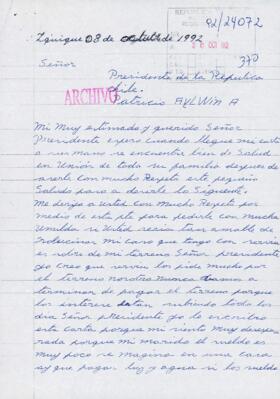 REPUBLICA
92/24072
Iquique 08 de octubre de 1992
20 OCT 92
Señor
370
Presidente de la Republica
Chile.
ARCHIVO
Patricio AYLWIN A
Mi Muy estimado y querido Señor
Presidente espero cuando llegue mi carta
a sus manos se encuentre bien de Salud
en Unión de toda su familia despues de
aserle con Mucho Respeto este pequeño
Saludo paso a desirle lo Siguiente.
Me dirijo a usted con Mucho Respeto por
medio de esta pte para pedirle con mucha
Umilda si Usted seria tan amable de
mi caso que tengo con serviu
es sobre de mi terreno Señor presidente
yo creo que serviu los pide mucho por
el terreno nosotros nunca
terminar de pagar el terreno porque
los interese estan subiendo todo los
dia Señor Presidente yo le escribo
esta carta porque mi siento Muy desespe
rada porque mi marido el sueldo es
muy poco se magina en una casa
ay que pagar luz y agua si los sueldo